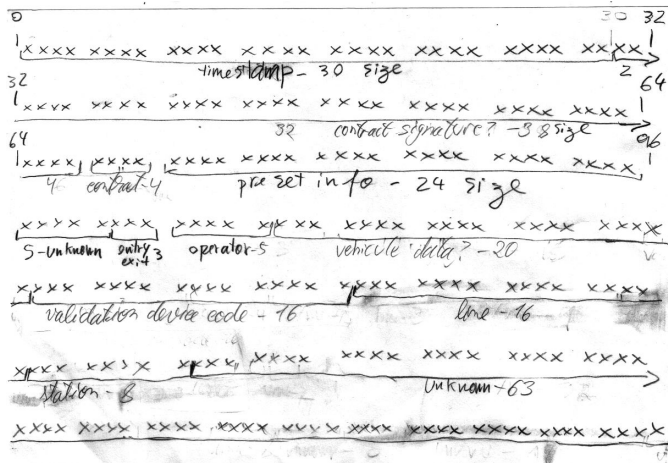 0 30 32
xxxx xxxx xxxx xxxx xxxx xxxx xxxx xxxx
timestamp - 30 size 2
32 64
xxxx xxxx xxxx xxxx xxxx xxxx xxxx xxxx
32 contract signature? - 38 size
64 96
xxxx xxxx xxxx xxxx xxxx xxxx xxxx xxxx
4 contrat - 4 preset info - 24 size
xxxx xxxx xxxx xxxx xxxx xxxx xxxx xxxx
5-unknown entry exit 3 operator-5 vehicule data? - 20
xxxx xxxx xxxx xxxx xxxx xxxx xxxx xxxx
validation device code - 16 line - 16
xxxx xxxx xxxx xxxx xxxx xxxx xxxx xxxx
station - 8 Unknown - 63
xxxx xxxx xxxx xxxx xxxx xxxx xxxx xxxx